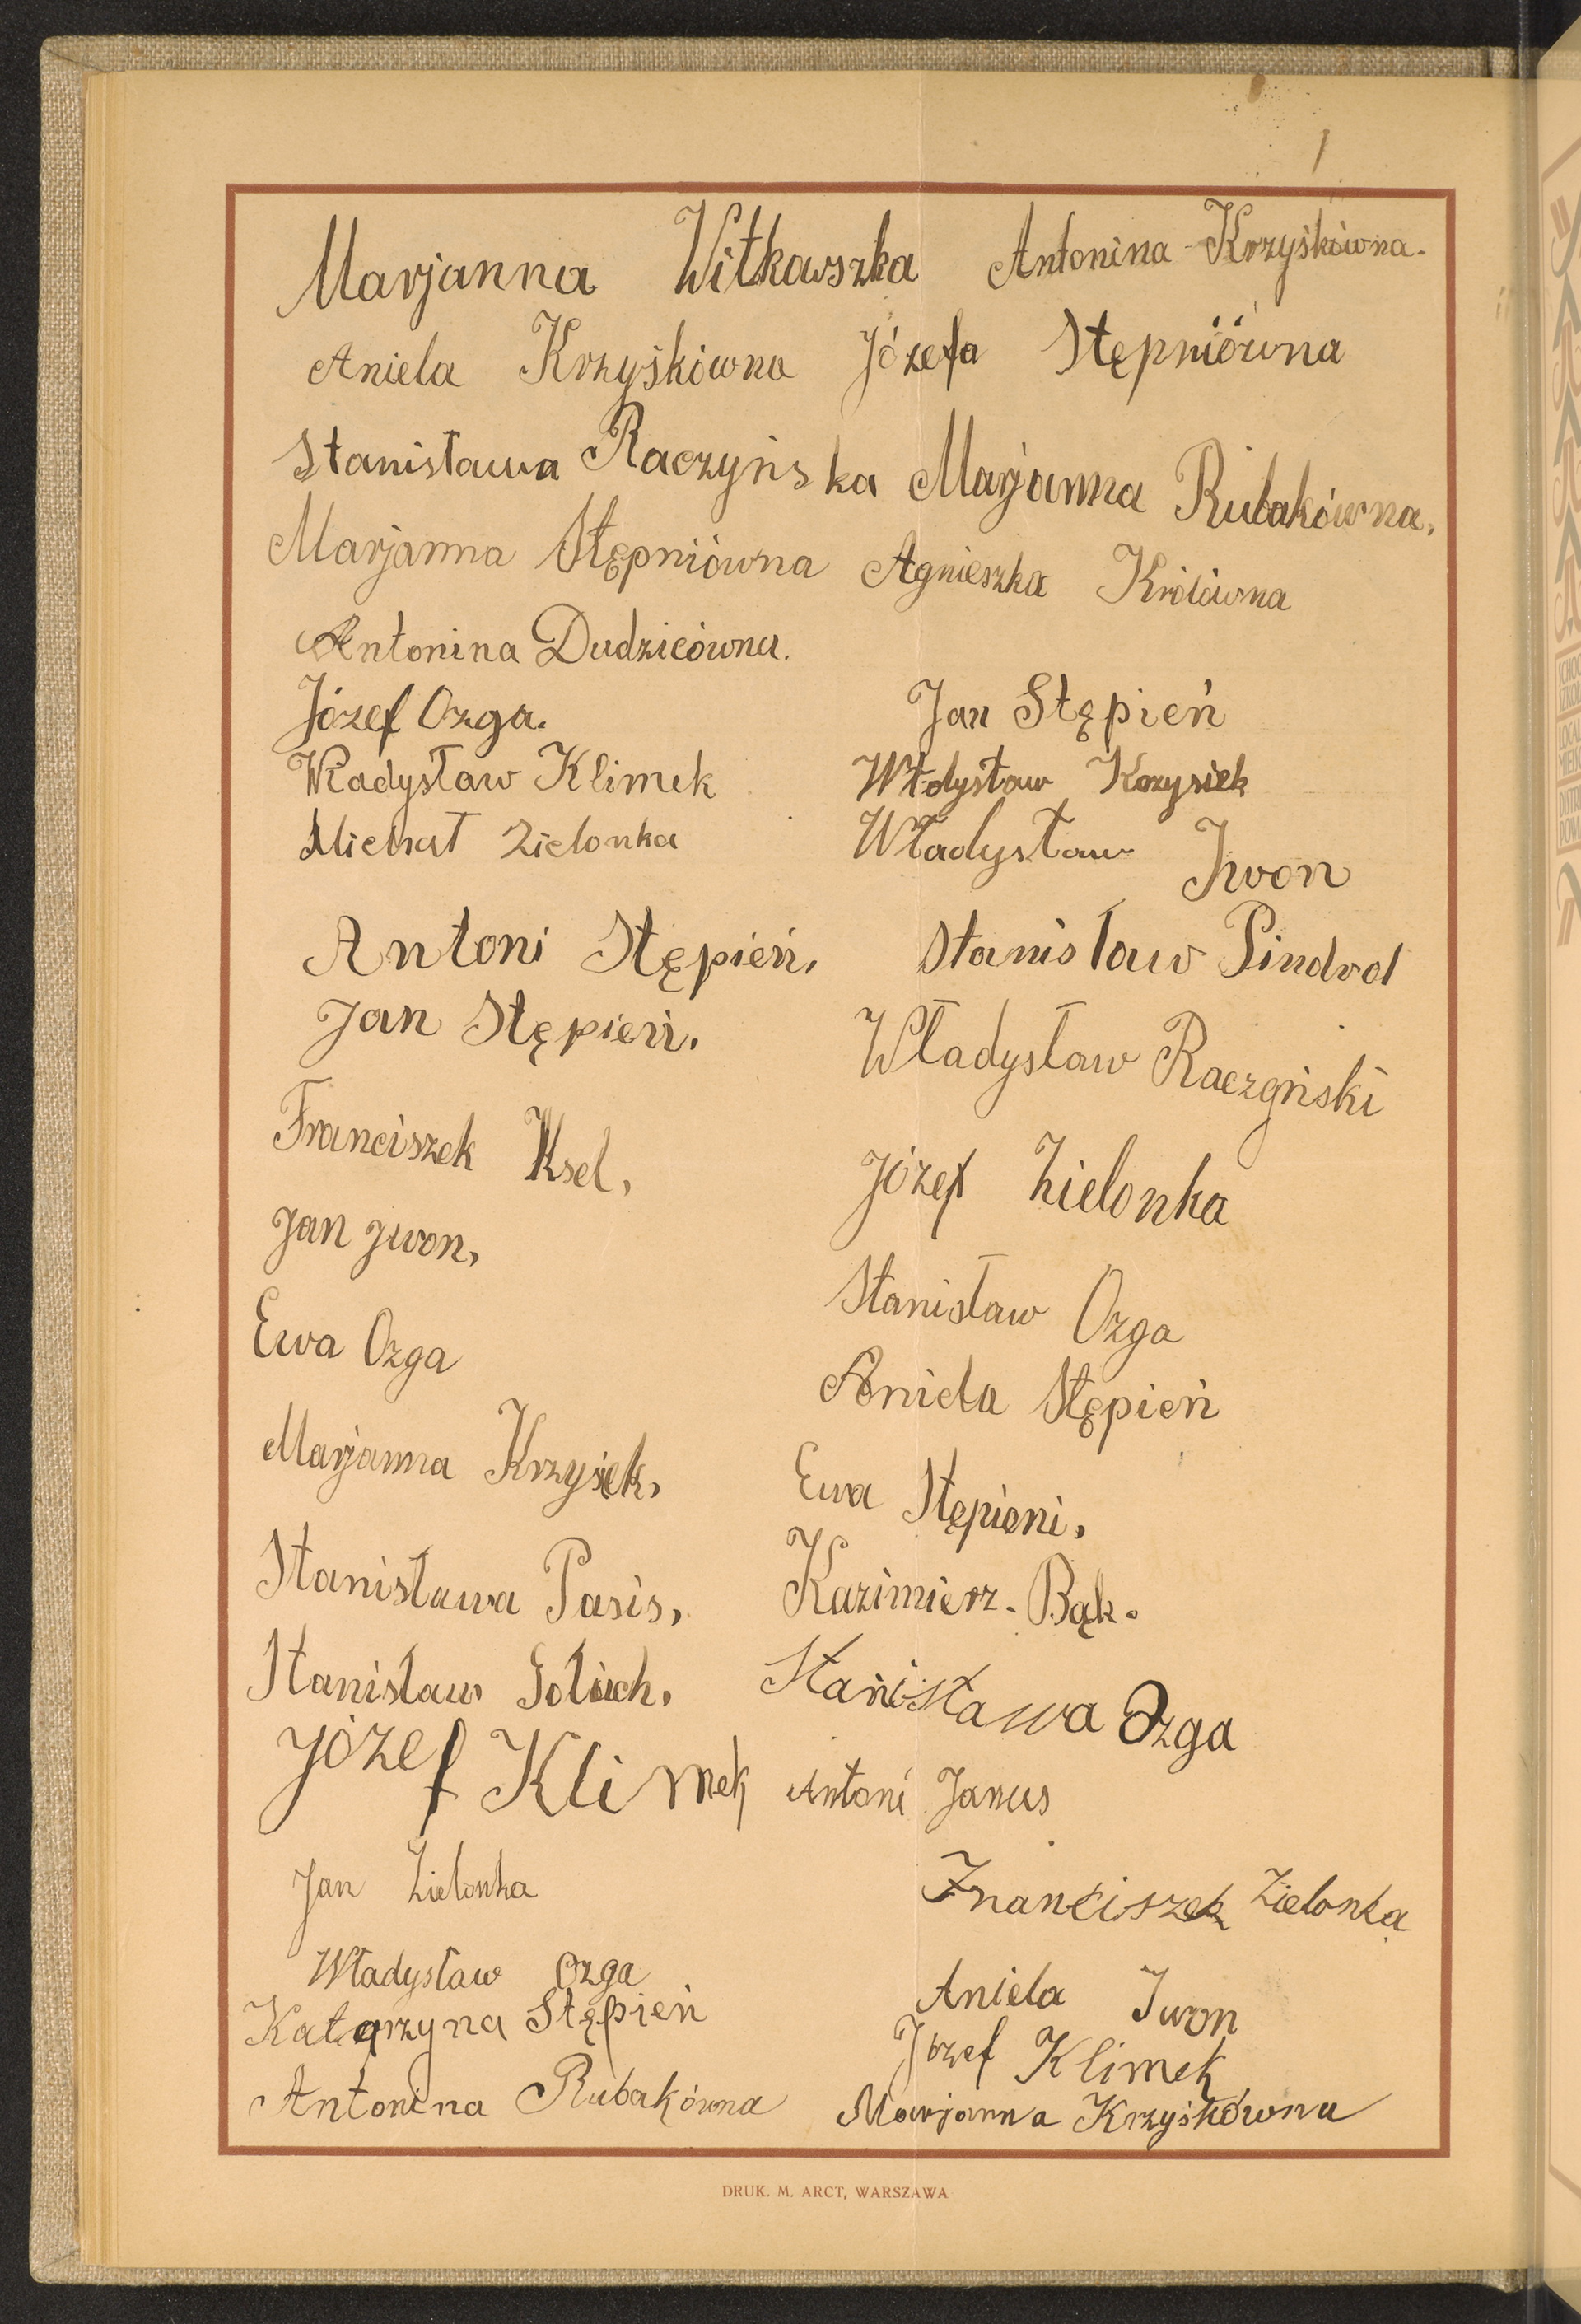 Marjanna Witkawszka Antonina Krzyśkówna.
Aniela Krzyśkówna Józefa Stępniówna
Stanisława Raczyńska Marjanna Rubakówna,
Marjanna Stępniówna Agnieszka Królówna
Antonina Dudzicówna.
Józef Ozga. Jan Stępień
Władysław Klimek Włdysław Krzysiek
Michał Zielonka Władysław Iwon
Antoni Stępień, Stanisław Pindral
Jan Stępień. Władysław Raczyński
Franciszek Ksel, Józef Zielonka
Jan Jwon, Stanisław Ozga
Ewa Ozga Aniela Stępień
Marjanna Krzysiek, Ewa Stępieni,
Stanisława Pasis, Kazimierz. Bąk.
Stanisław Stanisława Ozga
Józef Klimek Antoni Janus
Jan Zielonka Franciszek Zielonka
Władysław Ozga Aniela Iwon
Katarzyna Stępień Józef Klimek
Antonina Rubakówna Marjanna Krzyśkówna
DRUK. M. ARCT, WARSZAWA